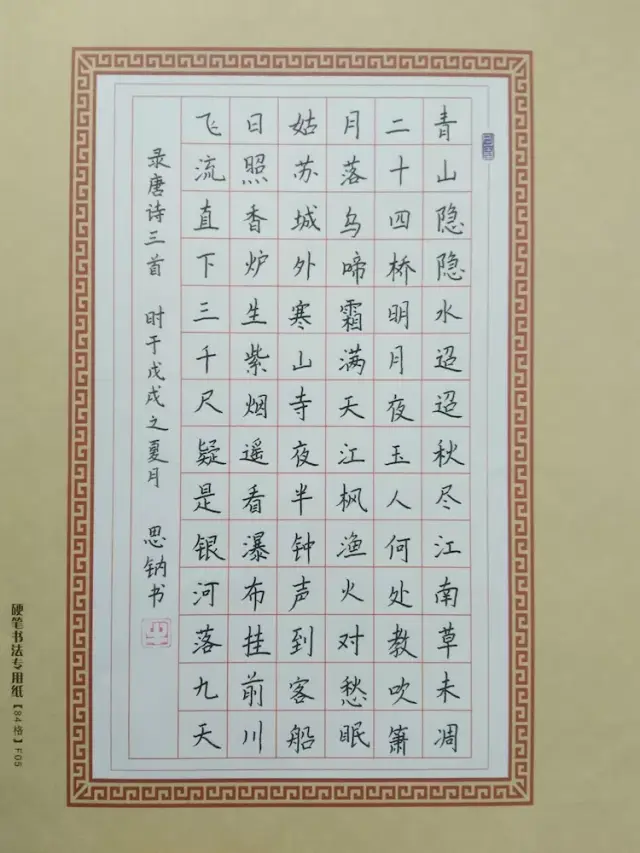 青山隐隐水迢迢秋尽江南草未凋
二十四桥明月夜玉人何处教吹箫
月落乌啼霜满天江枫渔火对愁眠
姑苏城外寒山寺夜半钟声到客船
日照香炉生紫烟遥看瀑布挂前川
飞流直下三千尺疑是银河落九天
录唐诗三首 时于戊戌之夏月 思钠书
硬笔书法专用纸【84格】F05